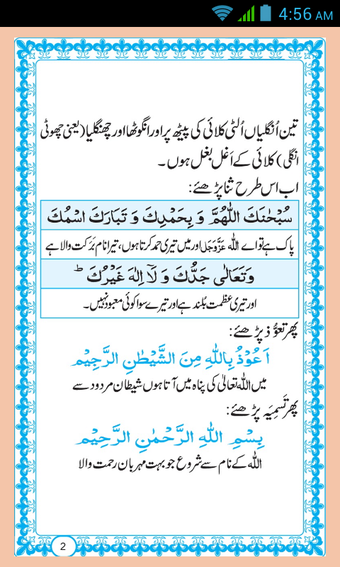 4:56 AM
تین اُنگلیاں اُلٹی کلائی کی پیٹھ پر اور انگوٹھا اور چھنگلیا (یعنی چھوٹی
انگلی) کلائی کے اَغل بغل ہوں۔
اب اس طرح ثنا پڑھئے:
سُبْحٰنَكَ اللّٰهُمَّ وَ بِحَمْدِكَ وَ تَبَارَكَ اسْمُكَ
پاک ہے تو اے اللہ عَزَّوَجَلَّ اور میں تیری حمد کرتا ہوں، تیرا نام بَرَکت والا ہے
وَتَعَالٰى جَدُّكَ وَ لَاۤ اِلٰهَ غَيْرُكَ ؕ
اور تیری عظمت بلند ہے اور تیرے سوا کوئی معبود نہیں۔
پھر تعوُّذ پڑھئے:
اَعُوْذُ بِاللّٰهِ مِنَ الشَّيْطٰنِ الرَّجِيْم
میں اللہ تعالٰی کی پناہ میں آتا ہوں شیطان مردود سے
پھر تَسمِیَہ پڑھئے:
بِسْمِ اللّٰهِ الرَّحْمٰنِ الرَّحِيْم
اللہ کے نام سے شروع جو بہت مہربان رحمت والا
2